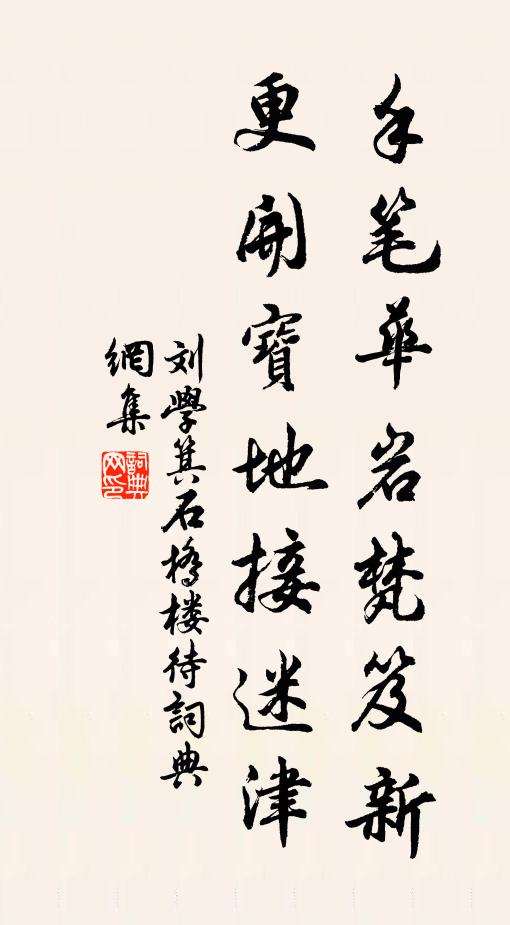 手笔華岩梵笈新
更開寶地接迷津
刘學箕石橋楼待詞典
網集
詞典網印